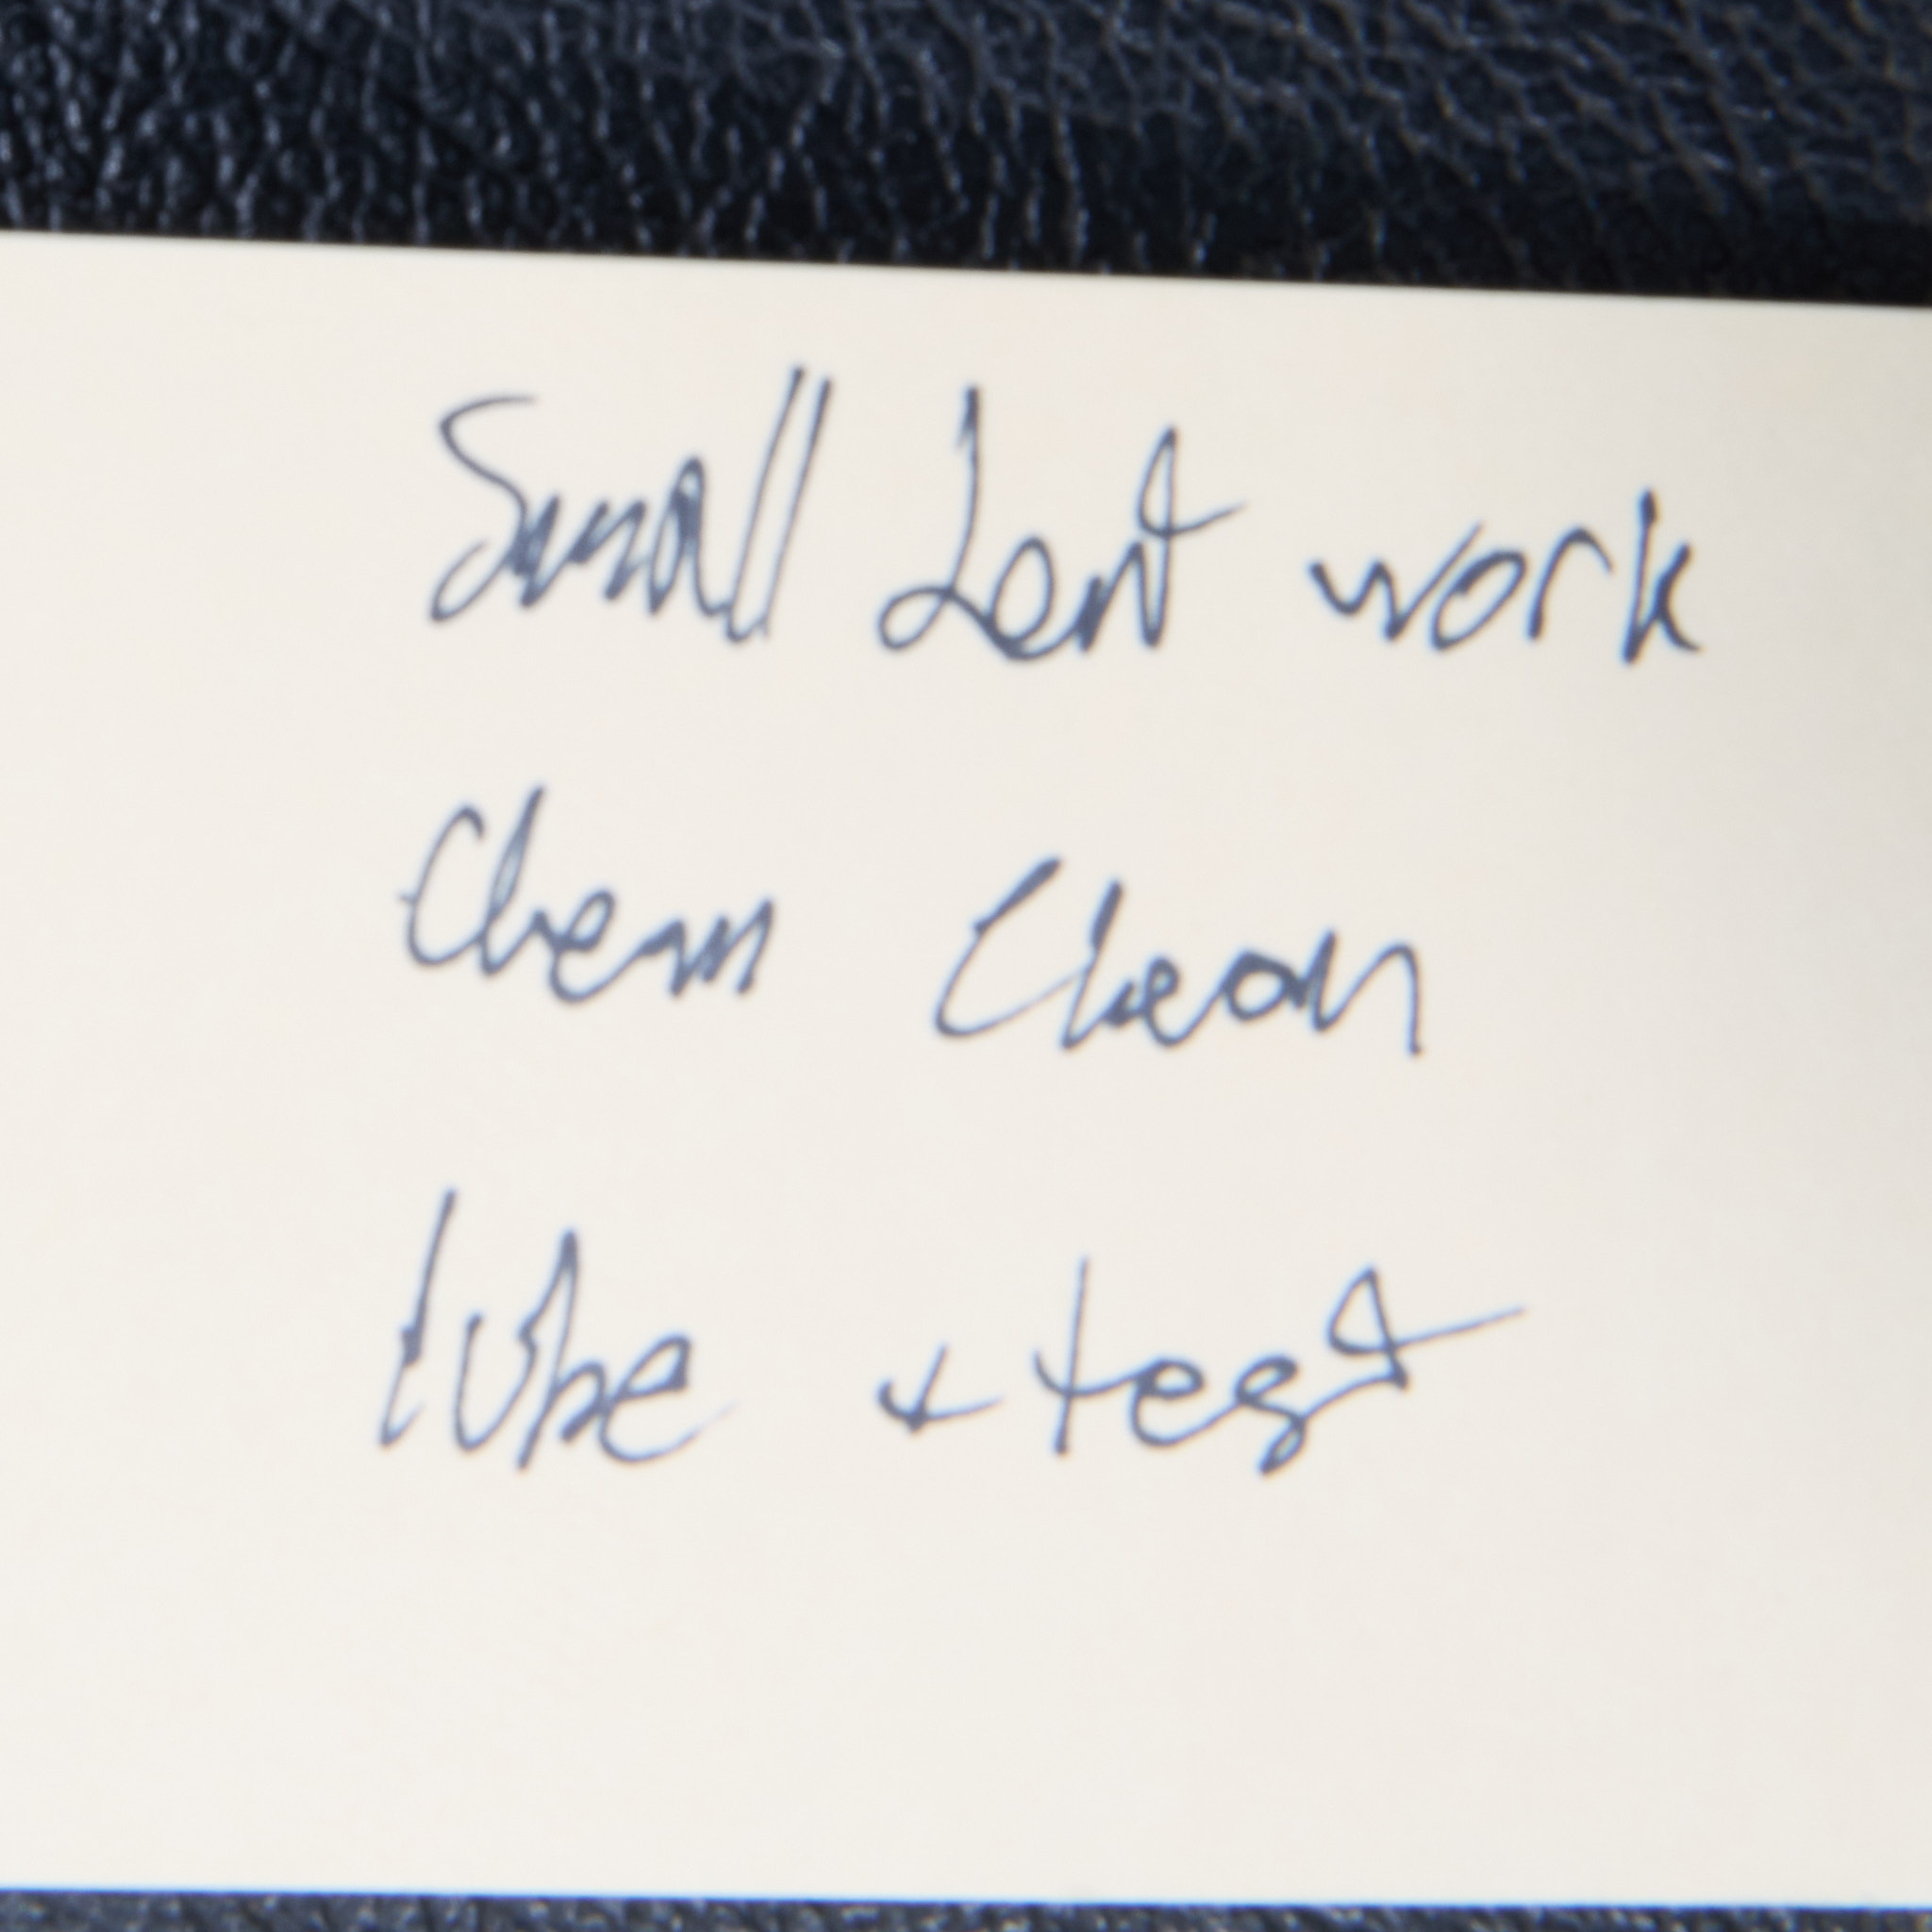 Small dent work
Chem Clean
lube + test